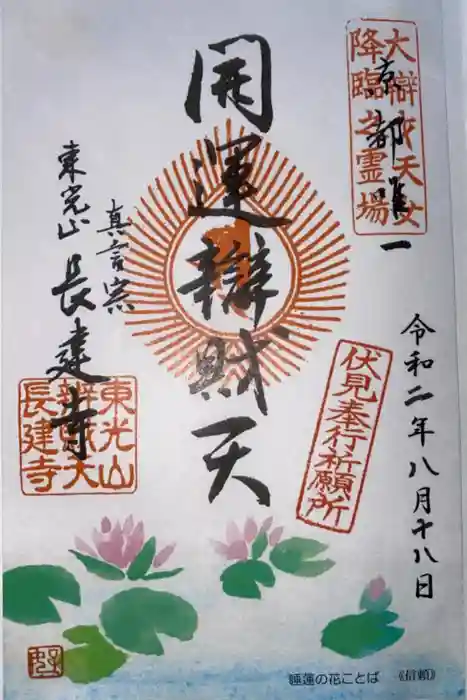 大辯才天女
降臨之霊場
京都唯一
令和二年八月十八日
開運辯財天
伏見奉行祈願所
真言宗
東光山
長建寺
東光山
辨財天
長建寺
睡蓮の花ことば 《信頼》